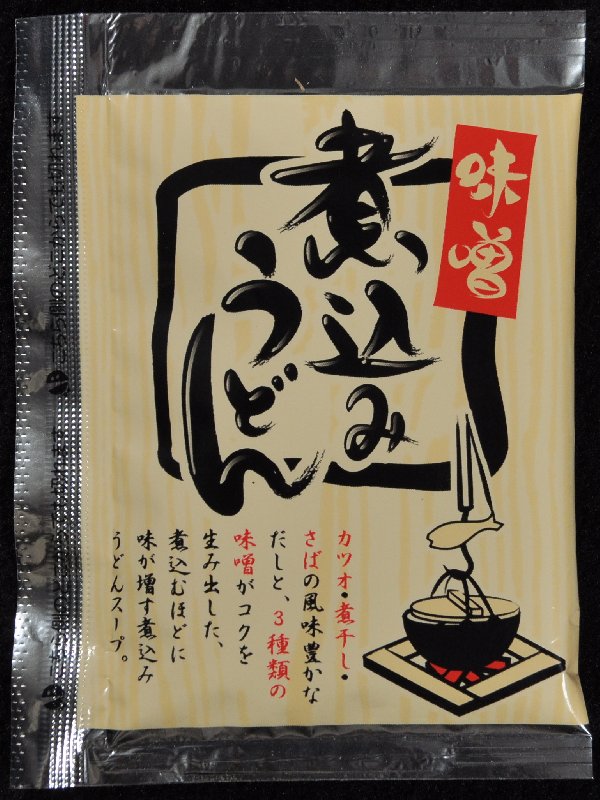 味噌
煮込み
うどん
カツオ・煮干し・
さばの風味豊かな
だしと、3種類の
味噌がコクを
生み出した、
煮込むほどに
味が増す煮込み
うどんスープ。